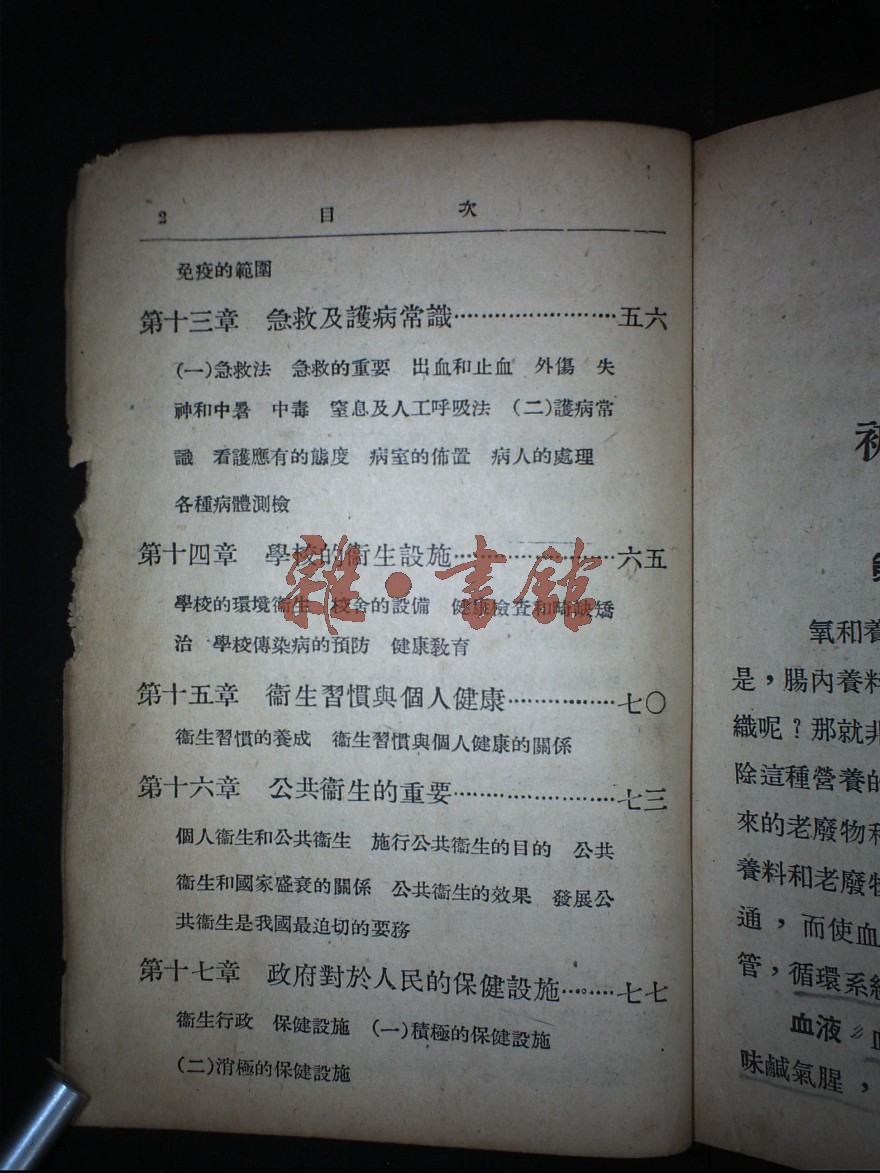 2 目 次
免疫的範圍
第十三章 急救及護病常識……………………五六
(一)急救法 急救的重要 出血和止血 外傷 失
神和中暑 中毒 窒息及人工呼吸法 (二)護病常
識 看護應有的態度 病室的佈置 病人的處理
各種病體測檢
第十四章 學校的衞生設施……………………六五
學校的環境衞生 校舍的設備 健康檢查和畸缺矯
治 學校傳染病的預防 健康敎育
第十五章 衞生習慣與個人健康……………七〇
衞生習慣的養成 衞生習慣與個人健康的關係
第十六章 公共衞生的重要……………………七三
個人衞生和公共衞生 施行公共衞生的目的 公共
衞生和國家盛衰的關係 公共衞生的效果 發展公
共衞生是我國最迫切的要務
第十七章 政府對於人民的保健設施………七七
衞生行政 保健設施 (一)積極的保健設施
(二)消極的保健設施
雜·書館
氧和養
是，腸內養料
織呢？那就非
除這種營養的
來的老廢物和
養料和老廢物
通，而使血
管，循環系統
血液
味鹹氣腥，